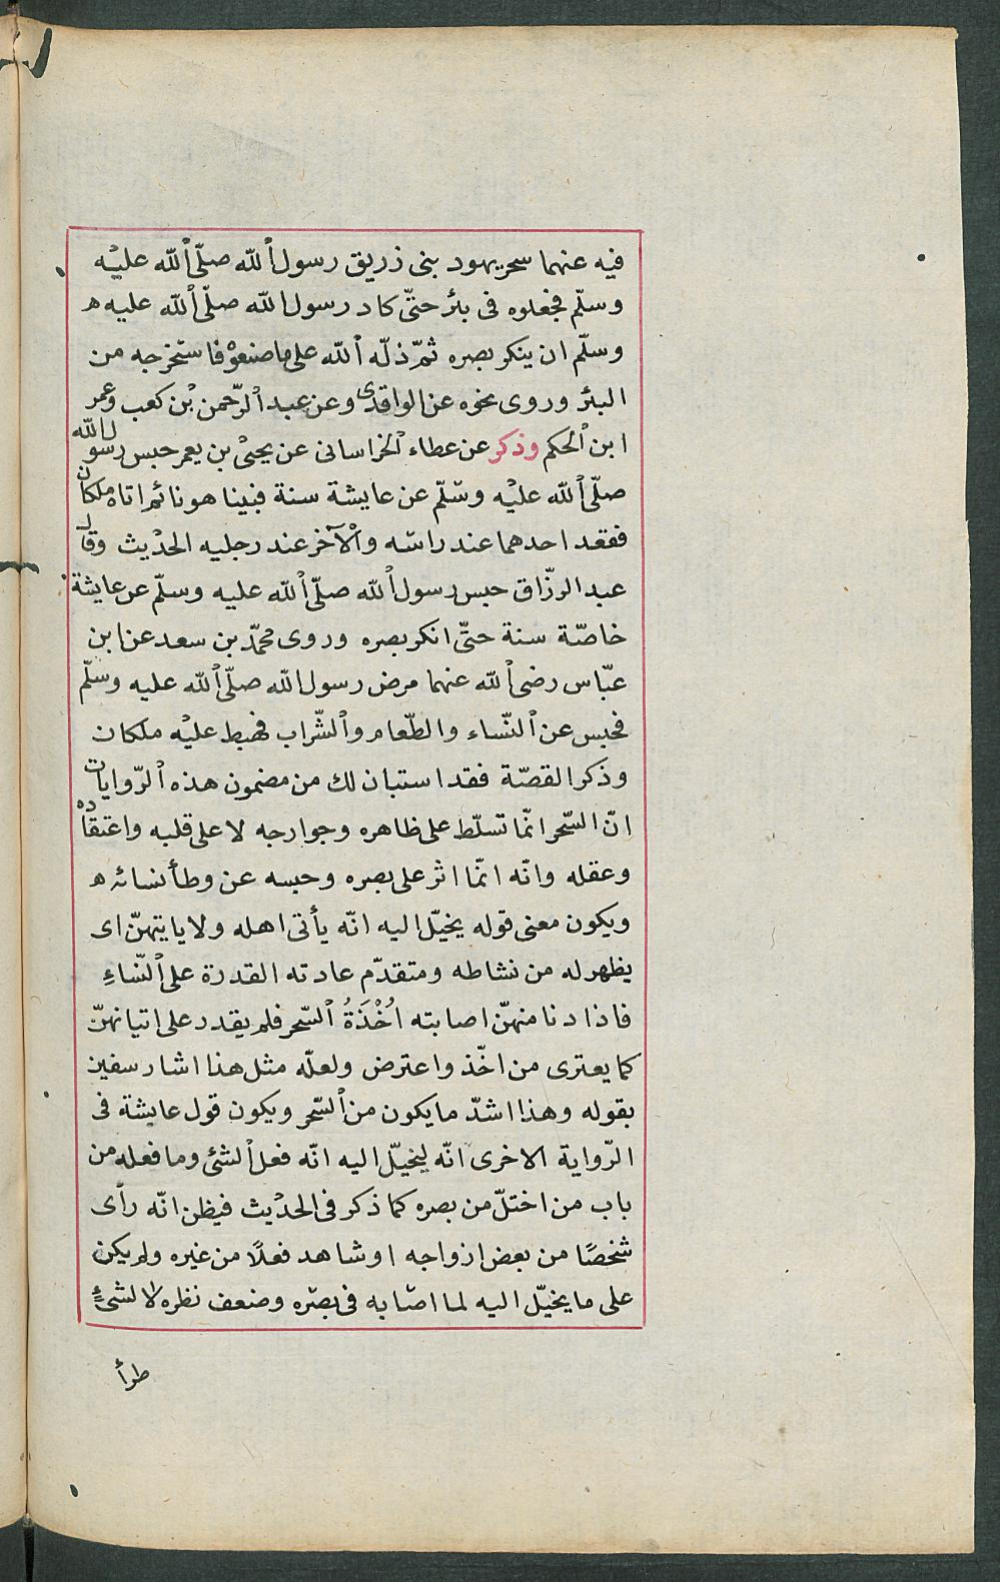 فيه عنهما سحر يهود بنى زريق رسول الله صلّى الله عليه
وسلّم فجعلوه فى بئر حتّى كاد رسول الله صلّى الله عليه ه
وسلّم ان ينكر بصره ثمّ دلّه الله على ما صنعوْ فاستخرجه من
البئر وروى نحوه عن الواقدى وعن عبد الرّحمن بن كعب وعمر
ابن الحكم وذكر عن عطاء الخراسانى عن يحيى بن يعمر حبس رسول الله
صلّى الله عليه وسّلّم عن عايشة سنة فبينا هو نائم اتاه ملكان
فقعد احدهما عند راسّه والآخر عند رجليه الحديث وقال
عبد الرزّاق حبس رسول الله صلّى الله عليه وسلّم عن عايشة
خاصّة سنة حتّى انكر بصره وروى محمّد بن سعد عن ابن
عبّاس رضى الله عنهما مرض رسول الله صلّى الله عليه وسلّم
فحبس عن النّساء والطّعام والشّراب فهبط عليه ملكان
وذكر القصّة فقد استبان لك من مضمون هذه الرّوايات
انّ السّحر انّما تسلّط على ظاهره وجوارحه لا على قلبه واعتقاده
وعقله وانّه انّما اثر على بصره وحبسه عن وطأ نسائه ه
ويكون معنى قوله يخيّل اليه انّه يأتى اهله ولا ياتيهنّ اى
يظهر له من نشاطه ومتقدّم عادته القدرة على النّساءِ
فاذا دنا منهنّ اصابته اُخْذَةُ السّحر فلم يقدر على اتيانهنّ
كما يعترى من اخّذ واعترض ولعلّه مثل هذا اشار سفين
بقوله وهذا اشدّ ما يكون من السّحر ويكون قول عايشة فى
الرّواية الاخرى انّه ليخيّل اليه انّه فعل الشئ وما فعله من
باب من اختلّ من بصره كما ذكر فى الحديث فيظن انّه رأى
شخصًا من بعض ازواجه او شاهد فعلًا من غيره ولم يكن
على ما يخيّل اليه لما اصابه فى بصره وضعف نظره لا لشئٍ
طرأ